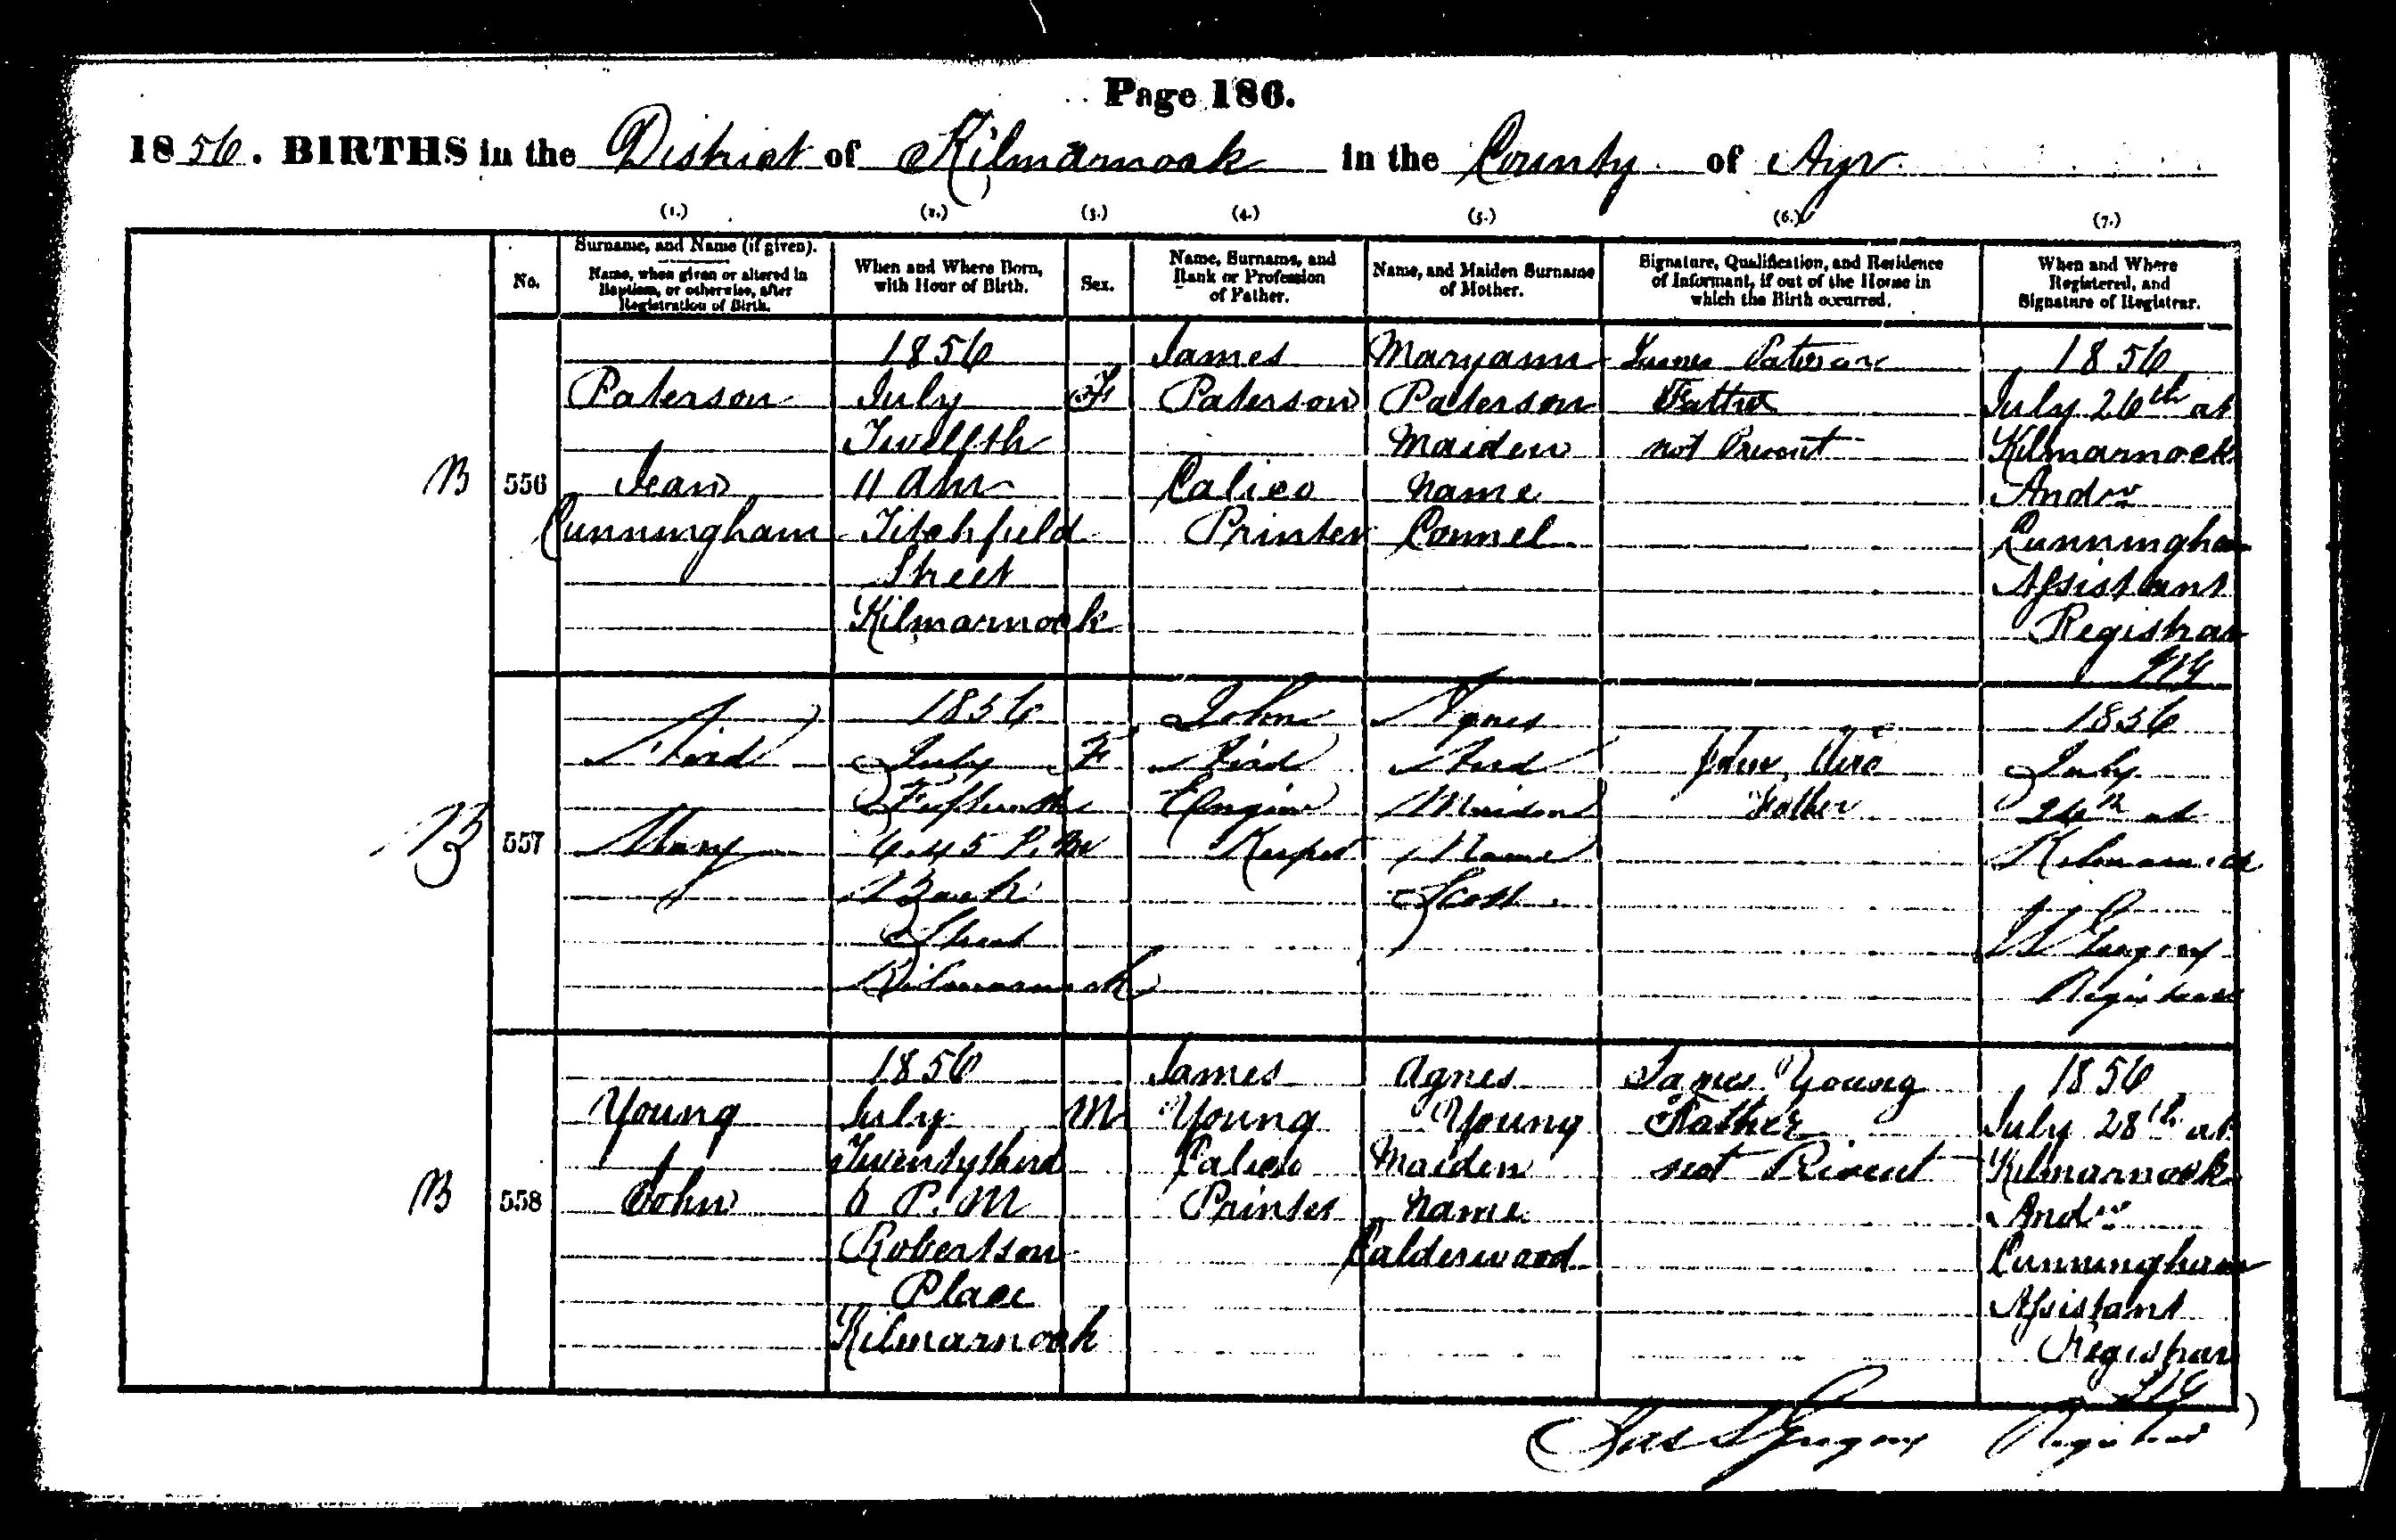 Page 186.
1856. BIRTHS in the District of Kilmarnock in the County of Ayr
(1.) (2.) (3.) (4.) (5.) (6.) (7.)
No.
Surname, and Name (if given).
Name, when given or altered in
Baptism, or otherwise, after
Registration of Birth.
When and Where Born,
with Hour of Birth.
Sex.
Name, Surname, and
Rank or Profession
of Father.
Name, and Maiden Surname
of Mother.
Signature, Qualification, and Residence
of Informant, if out of the House in
which the Birth occurred.
When and Where
Registered, and
Signature of Registrar.
B
556
Paterson
Jean
Cunningham
1856
July
Twelfth
11 am
Titchfield
Street
Kilmarnock
F
James
Paterson
Calico
Printer
Maryann
Paterson
Maiden
Name
Connel
James Paterson
Father
not Present
1856
July 26th at
Kilmarnock
Andw
Cunningham
Assistant
Registrar
B
557
Aird
Mary
1856
July
Fifteenth
6.45 P.M
Back
Street
Kilmarnock
F
John
Aird
Engine
Keeper
Agnes
Aird
Maiden
Name
Scott
John Aird
Father
1856
July
26th at
Kilmarnock
Gregory
Registrar
B
558
Young
John
1856
July
Twenty third
P.M
Robertson
Place
Kilmarnock
M
James
Young
Calico
Printer
Agnes
Young
Maiden
Name
Calderwood
James Young
Father
not Present
1856
July 28th at
Kilmarnock
Andw
Cunningham
Assistant
Registrar
Gregory Registrar